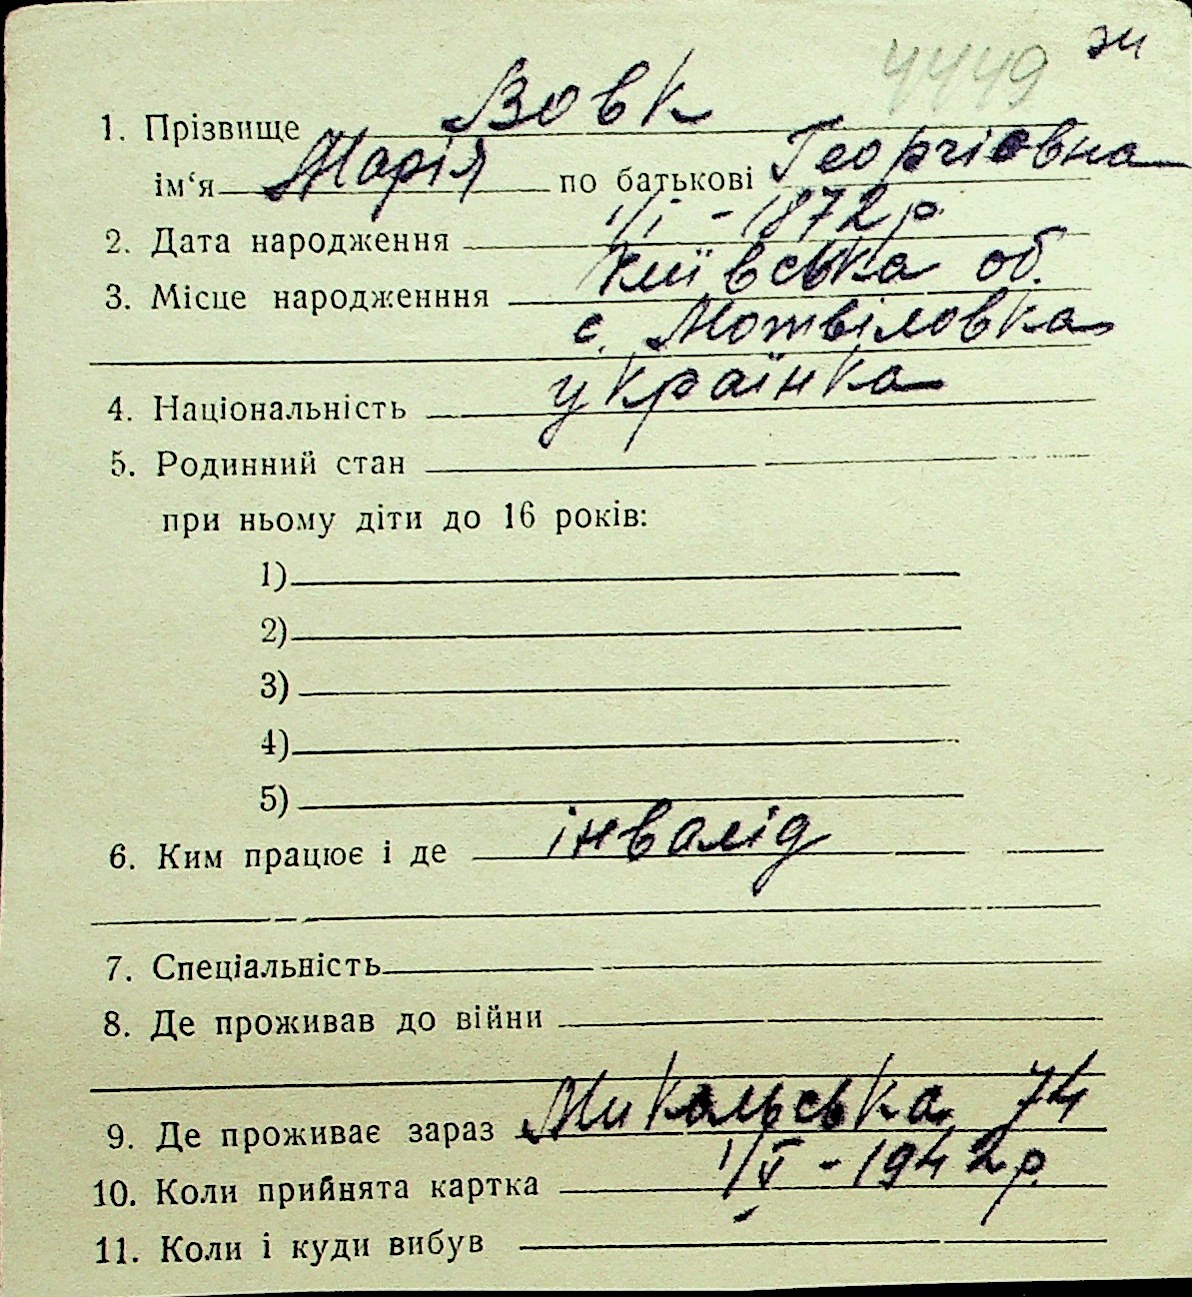 4449 зн
1. Прізвище Вовк
ім‘я Марія по батькові Георгіовна
2. Дата народження 1/I - 1872 р.
3. Місце народженння Київська об.
с. Мотвіловка
4. Національність українка
5. Родинний стан
при ньому діти до 16 років:
1)
2)
3)
4)
5)
6. Ким працює і де інвалід
7. Спеціальність
8. Де проживав до війни
9. Де проживає зараз Микольська 74
10. Коли прийнята картка 1/V - 1942 р.
11. Коли і куди вибув